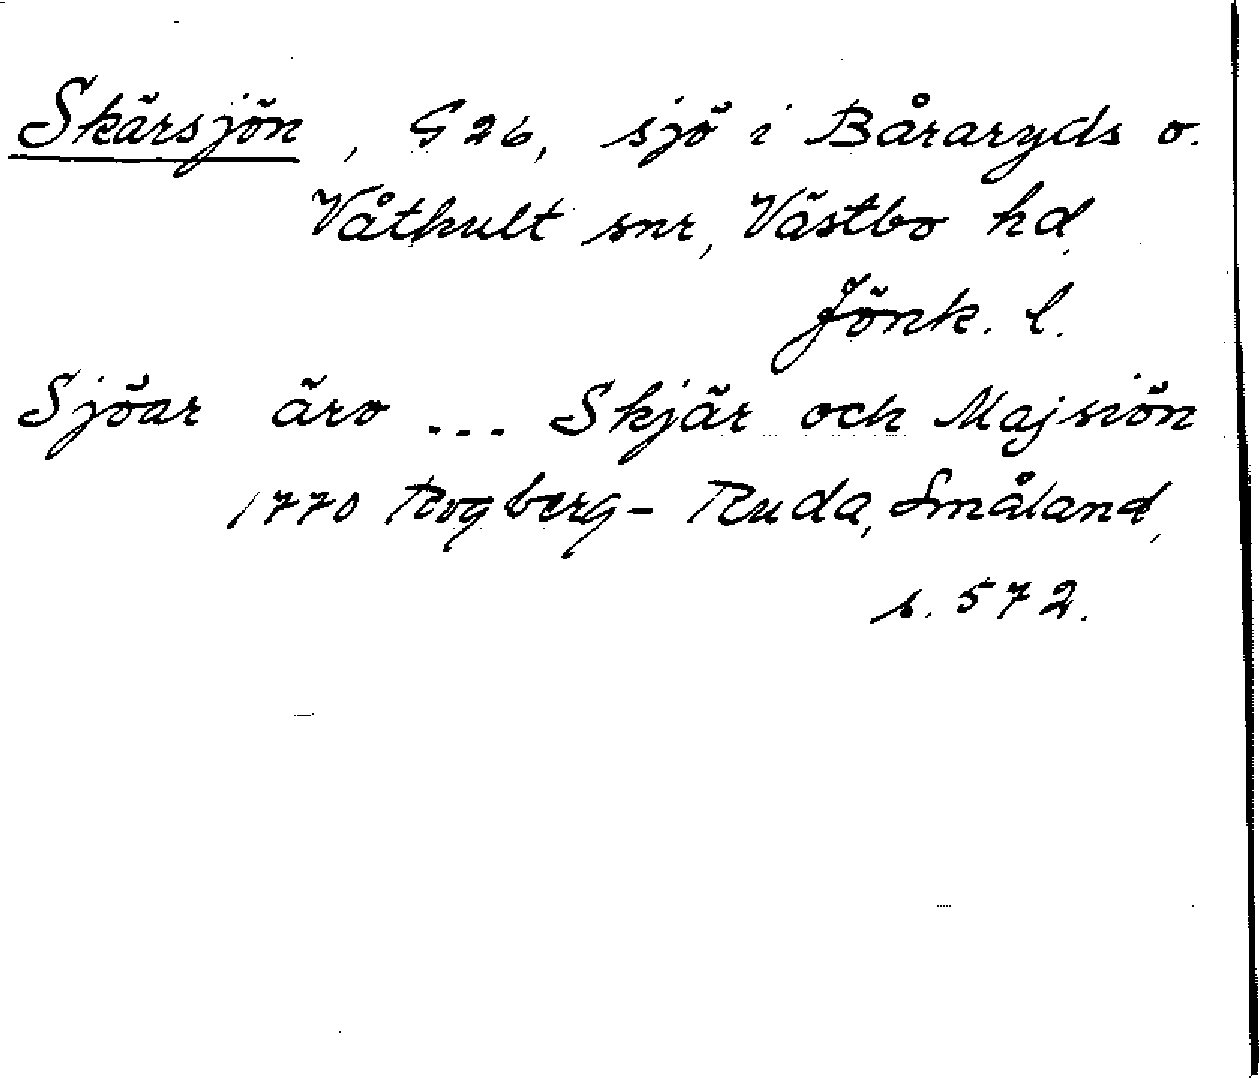 Skärsjön, G 26, sjö i Båraryds o.
Våthult snr, Västbo hd,
Jönk. l.
Sjöar äro ... Skjär och Majsiön
1770 Rogberg - Ruda, Småland,
s. 572.